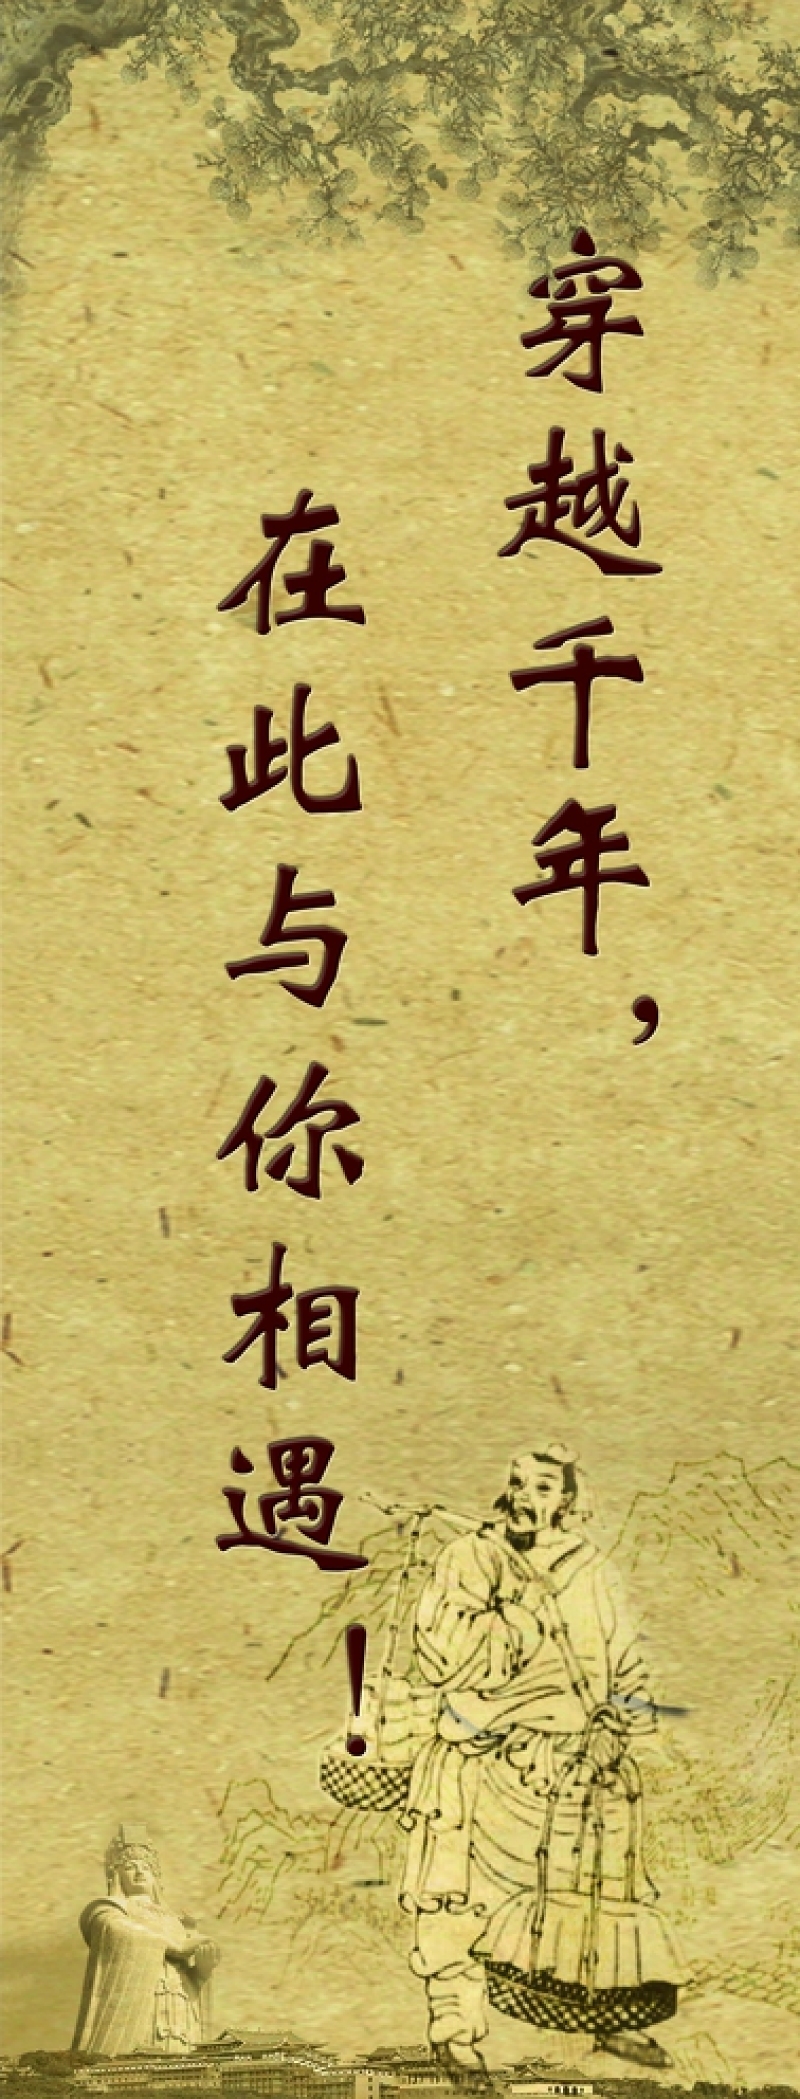 穿越千年，
在此与你相遇！